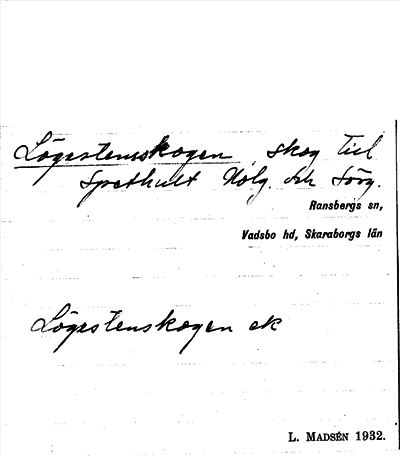 Lögestensskogen, skog till
Spethult Nolg. och Sörg.
Ransbergs sn,
Vadsbo hd, Skaraborgs län
Lögestenskogen ek
L. MADSÉN 1932.